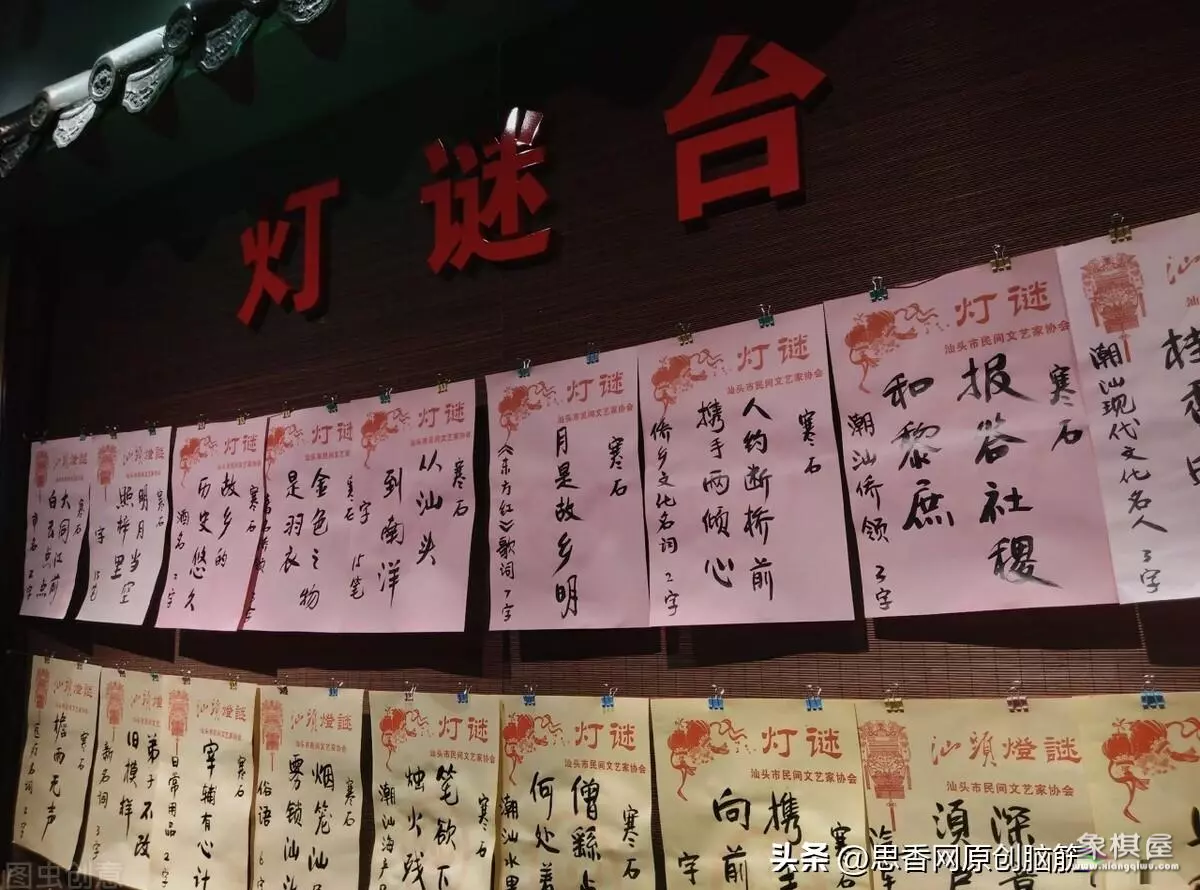 灯谜台
汕頭燈謎
寒石
大同江前
白云点点
2字
汕頭燈謎
寒石
明月当空
照梓里
字
15笔
灯谜
寒石
故乡的
历史悠久
酒名
2字
灯谜
寒石
金色之物
是羽衣
灯谜
汕头市民间文艺家协会
寒石
从汕头
到南洋
字
15笔
灯谜
汕头市民间文艺家协会
寒石
月是故乡明
《东方红》歌词
7字
灯谜
汕头市民间文艺家协会
寒石
人约断桥前
携手两倾心
侨乡文化名词
2字
灯谜
汕头市民间文艺家协会
寒石
报答社稷
和黎庶
潮汕侨领
3字
潮汕现代文化名人
3字
汕頭燈謎
寒石
檐雨无声
2字
汕頭燈謎
寒石
弟子不改
旧模样
新名词
3字
汕頭燈謎
寒石
宰辅有心计
日常用品
2字
汕頭燈謎
寒石
烟笼汕
雾锁汕
俗语
6
灯谜
汕头市民间文艺家协会
寒石
笔欲下
烛火残
潮汕海产
灯谜
汕头市民间文艺家协会
寒石
僧繇点
何处
潮汕水果
灯谜
汕头市民间文艺家协会
寒石
携
向前
字
汕頭燈謎
汕头市民间文艺家协会
深
須
图虫创意
头条 @思香网原创脑筋
象棋屋
www.xiangqiwu.com